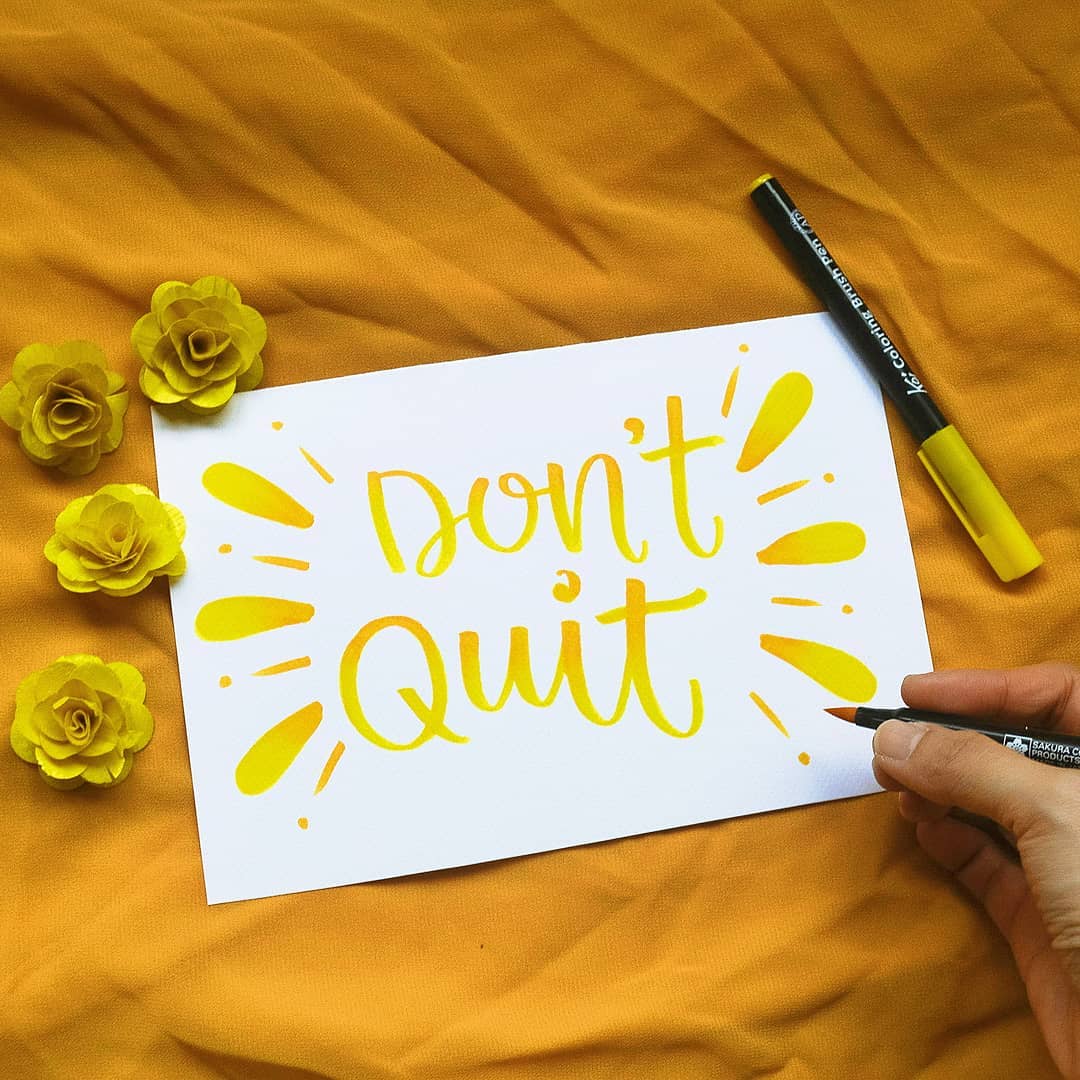 Don't
Quit
Koi Coloring Brush Pen
SAKURA CO
PRODUCTS